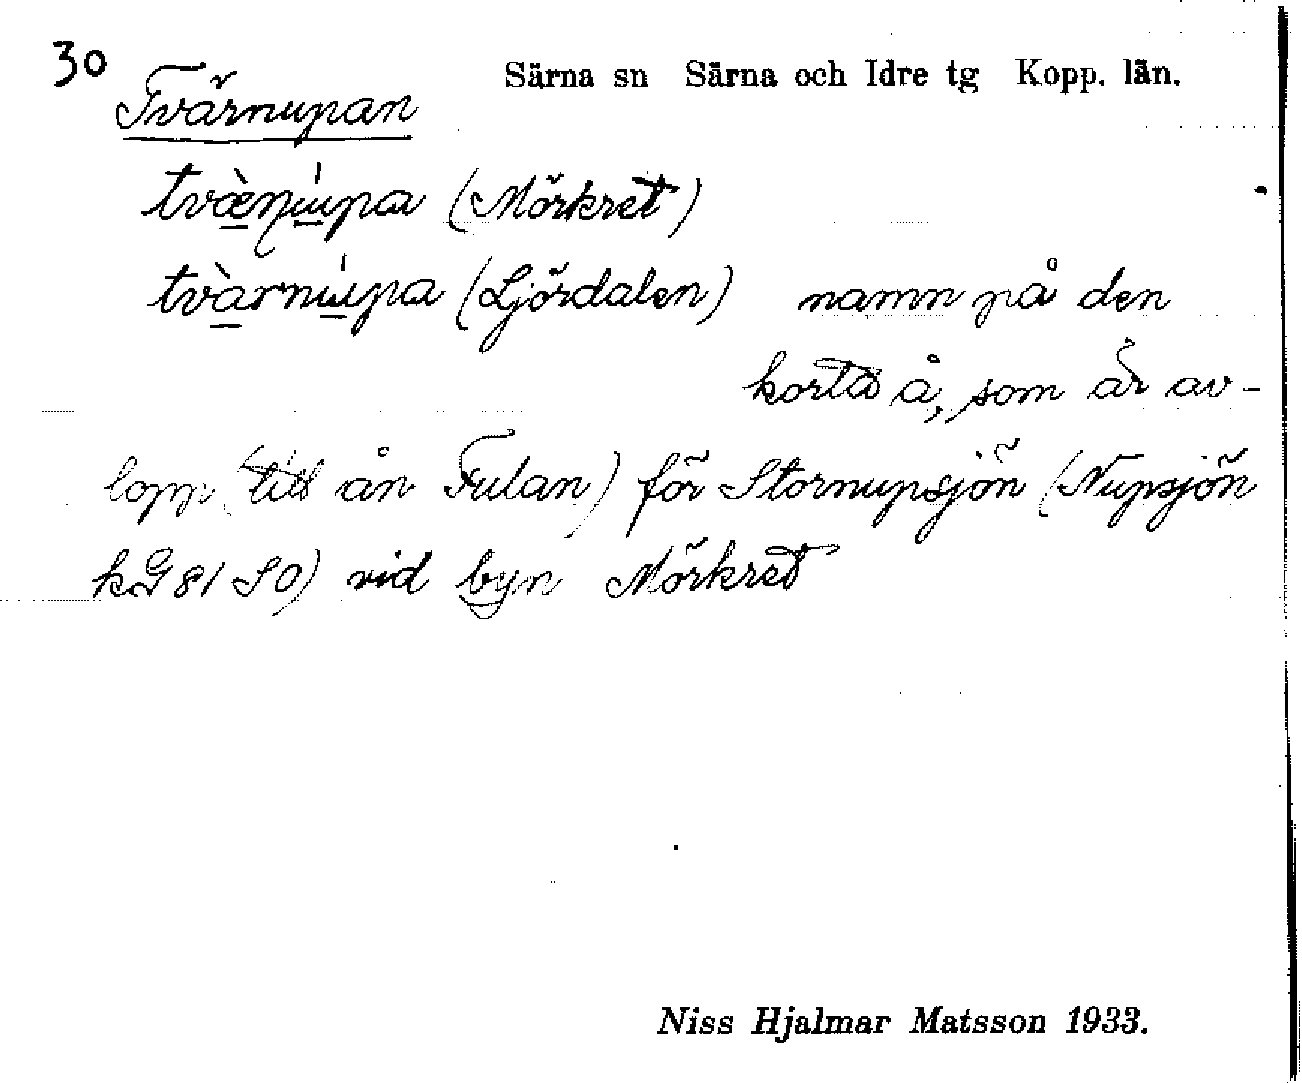 30
Särna sn Särna och Idre tg Kopp. län.
Tvärnupan
tvæ̀ɳúpa (Mörkret)
tvàrnúpa (Ljördalen) namn på den
korta å, som är av-
lopp (till ån Fulan) för Stornupsjön (Nupsjön
kG 81 SO) vid byn Mörkret
Niss Hjalmar Matsson 1933.